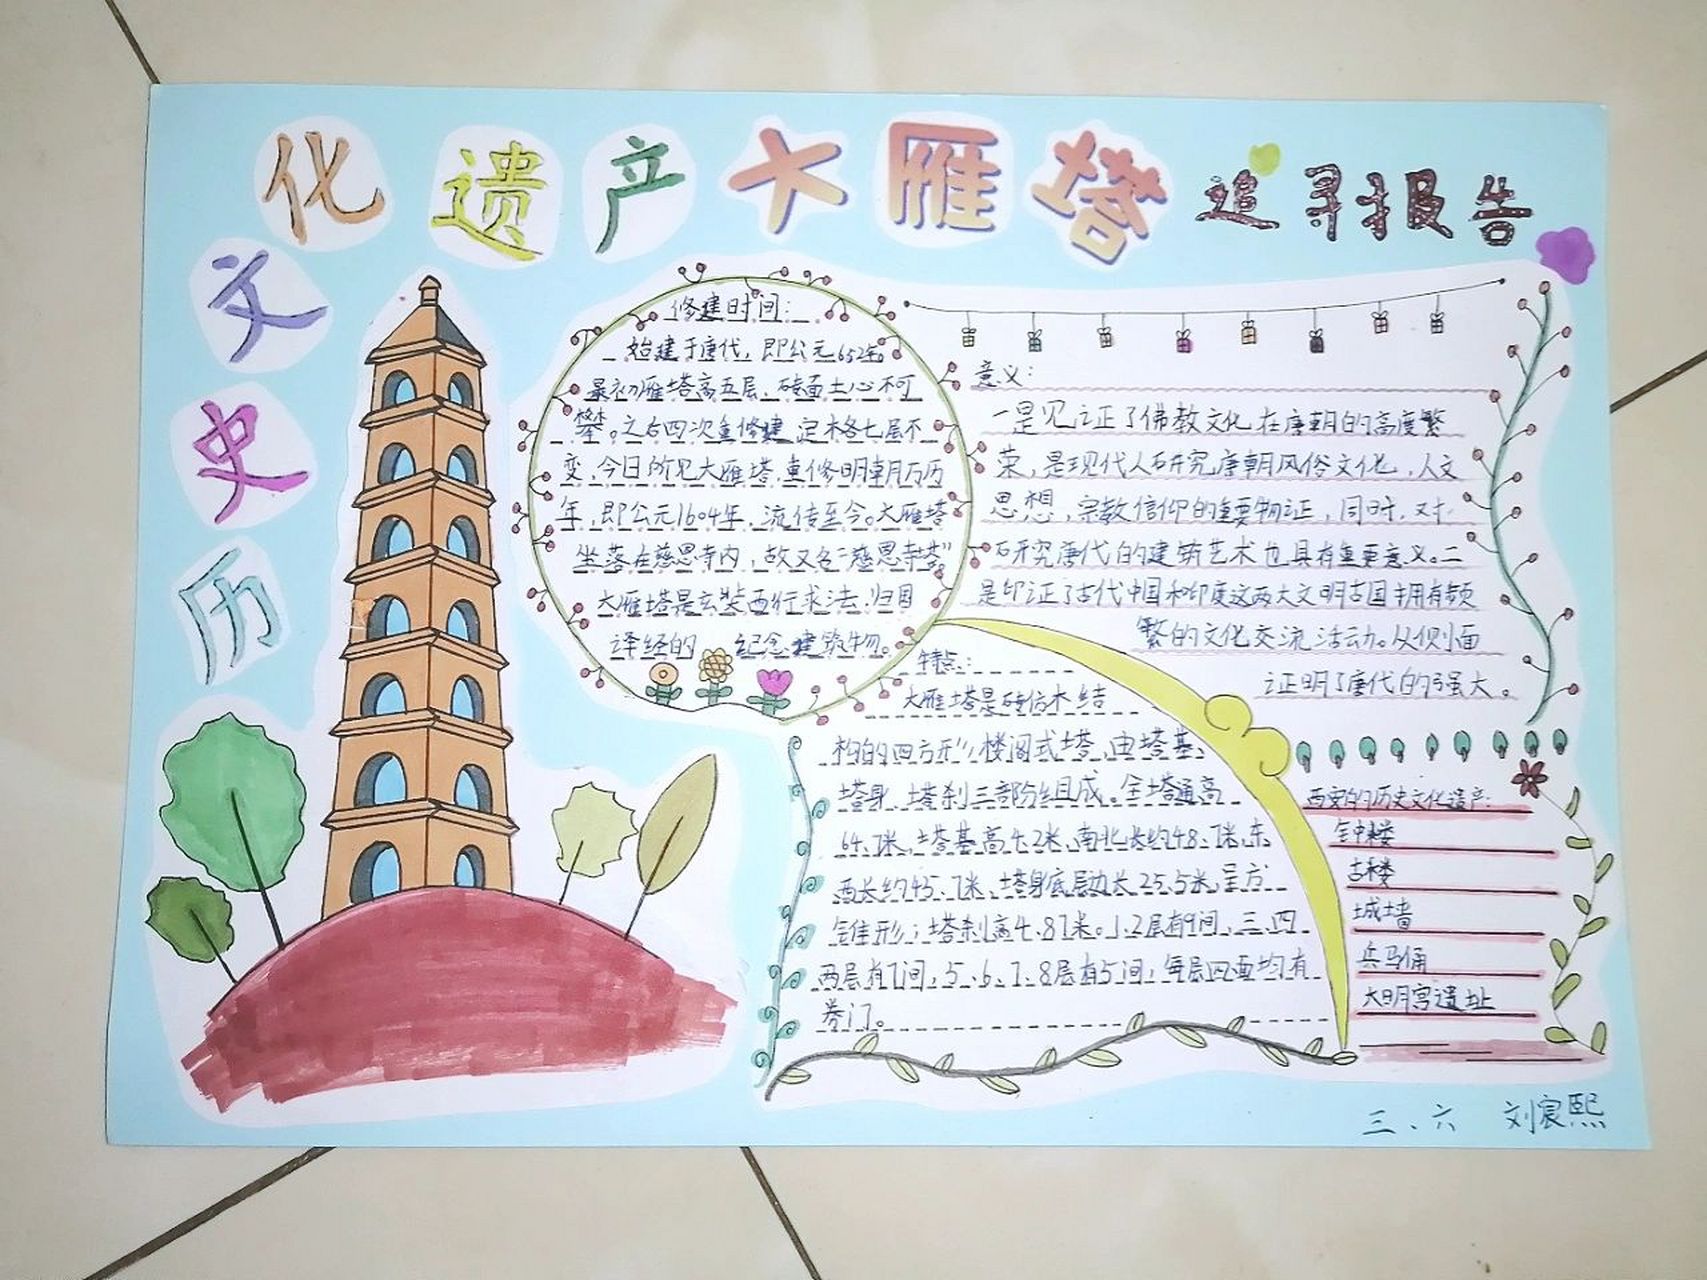 历史文化遗产大雁塔追寻报告
修建时间:
始建于唐代,即公元652年。
最初雁塔高五层、砖面土心不可
攀。之后四次重修建,定格七层不
变,今日所见大雁塔,重修明朝万历
年,即公元1604年,流传至今。大雁塔
坐落在慈恩寺内,故又名“慈恩寺塔”
大雁塔是玄奘西行求法、归国
译经的 纪念建筑物。
意义:
一是见证了佛教文化在唐朝的高度繁
荣,是现代人研究唐朝风俗文化,人文
思想,宗教信仰的重要物证,同时,对
研究唐代的建筑艺术也具有重要意义。二
是印证了古代中国和印度这两大文明古国拥有频
繁的文化交流活动。从侧面
证明了唐代的强大。
特点:
大雁塔是砖仿木结
构的四方形楼阁式塔,由塔基、
塔身、塔刹三部分组成。全塔通高
64.7米,塔基高4.2米,南北长约48.7米,东
西长约45.7米,塔身底层边长25.5米,呈方
锥形;塔刹高4.87米。1、2层有9间,三、四
两层有7间,5、6、7、8层有5间,每层四面均有
券门。
西安的历史文化遗产:
钟楼
古楼
城墙
兵马俑
大明宫遗址
三、六 刘宸熙